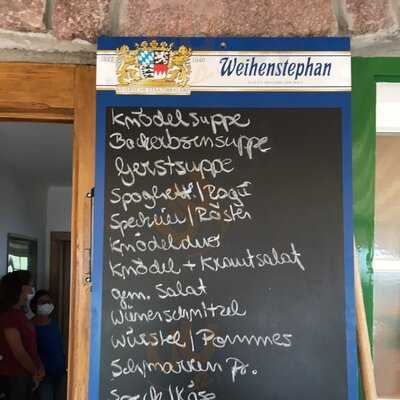 Weihenstephan
Knödelsuppe
Backerbsensuppe
Gerstsuppe
Spaghetti/Ragú
Speckeier/Röster
Knödelduo
Knödel + Krautsalat
gem. Salat
Wienerschnitzel
Würstel/Pommes
Schmarren Pr.
Speck/Käse